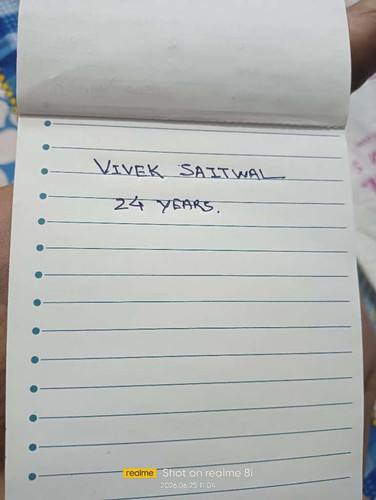 VIVEK SAITWAL
24 YEARS.
realme Shot on realme 8i
2026.06.25 11:04